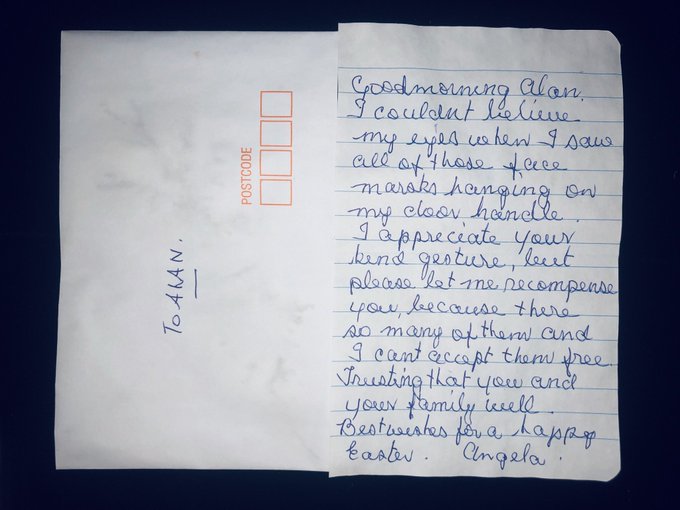 POSTCODE
TO ALAN.
Goodmorning Alan.
I couldnt believe
my eyes when I saw
all of those face
marsks hanging on
my door handle.
I appreciate your
kind gesture, but
please let me recompense
you, because there
so many of them and
I cant accept them free.
Trusting that you and
your family well.
Best wishes for a happy
Easter. Angela.